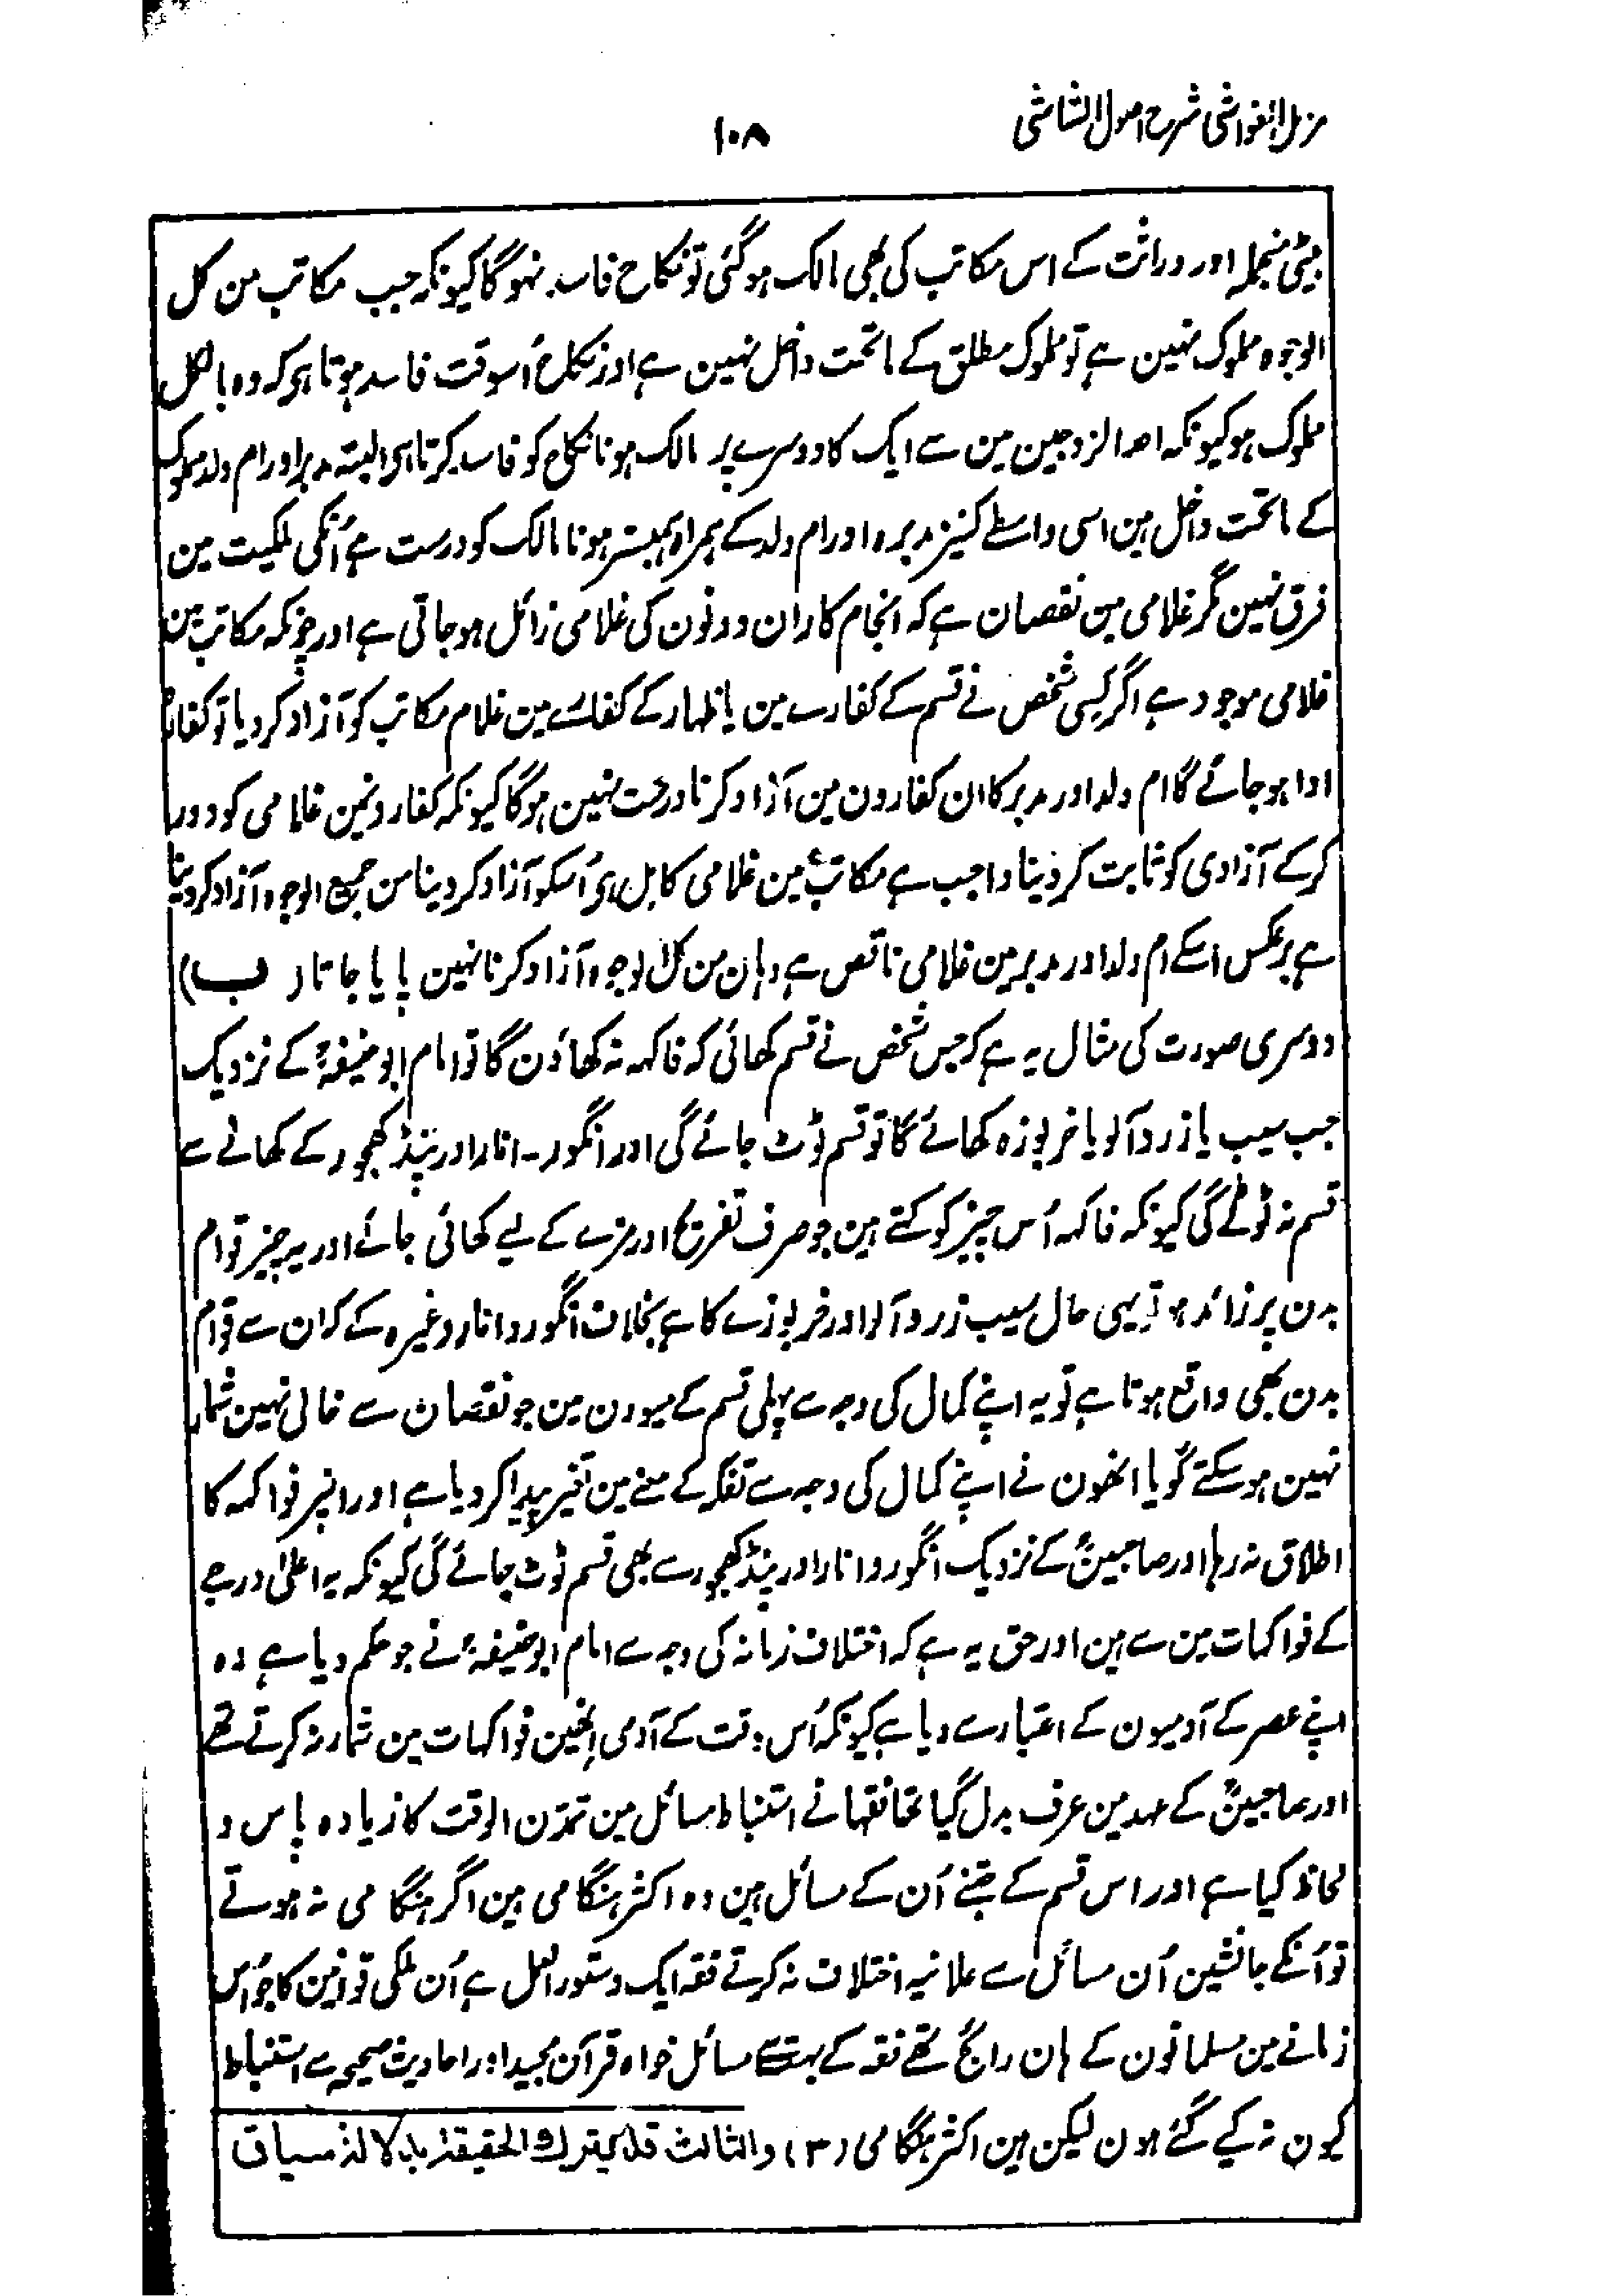 مزیل الغواشی شرح اصول الشاشی
۱۰۸
بیٹی منجملہ اور وراثت کے اس مکاتب کی بھی مالک ہو گئی تو نکاح فاسد نہوگا کیونکہ جب مکاتب من کل
الوجوہ مملوک نہین ہے تو مملوک مطلق کے ماتحت داخل نہین ہے اور نکاح اُسوقت فاسد ہوتا ہی کہ وہ بالکل
مملوک ہو کیونکہ احد الزوجین مین سے ایک کا دوسرے پر مالک ہونا نکاح کو فاسد کرتا ہی البتہ مدبر اور ام ولد مملوک
کے ماتحت داخل ہین اسی واسطے کنیز مدبرہ اور ام ولد کے ہمراہ ہمبستر ہونا مالک کو درست ہے اُنکی ملکیت مین
فرق نہین مگر غلامی مین نقصان ہے کہ انجام کار ان دونون کی غلامی زائل ہو جاتی ہے اور چونکہ مکاتب مین
غلامی موجود ہے اگر کسی شخص نے قسم کے کفارے مین یا ظہار کے کفارے مین غلام مکاتب کو آزاد کر دیا تو کفارہ
ادا ہو جائے گا ام ولد اور مدبر کا ان کفارون مین آزاد کرنا درست نہین ہوگا کیونکہ کفارونمین غلامی کو دور
کرکے آزادی کو ثابت کر دینا واجب ہے مکاتب مین غلامی کامل ہی اُسکو آزاد کر دینا من جمیع الوجوہ آزاد کر دینا
ہے برعکس اسکے ام ولد اور مدبر مین غلامی ناقص ہے وہان من کل الوجوہ آزاد کرنا نہین پایا جاتا (ب)
دوسری صورت کی مثال یہ ہے کہ جس شخص نے قسم کھائی کہ فاکہہ نہ کھاؤن گا تو امام ابو حنیفہؒ کے نزدیک
جب سیب یا زرد آلو یا خربوزہ کھائے گا تو قسم ٹوٹ جائے گی اور انگور۔ انار اور پنڈ کھجور کے کھانے سے
قسم نہ ٹوٹے گی کیونکہ فاکہہ اُس چیز کو کہتے ہین جو صرف تفریح اور مزے کے لیے کھائی جائے اور یہ چیز قوام
بدن پر زائد ہو تو یہی حال سیب زرد آلو اور خربوزے کا ہے بخلاف انگور و انار وغیرہ کے کہ ان سے قوام
بدن بھی واقع ہوتا ہے تو یہ اپنے کمال کی وجہ سے پہلی قسم کے میوون مین جو نقصان سے خالی نہین شمار
نہین ہو سکتے گویا انھون نے اپنے کمال کی وجہ سے تفکہ کے معنے مین تغیر پیدا کر دیا ہے اور انپر فواکہہ کا
اطلاق نہ رہا اور صاحبینؒ کے نزدیک انگور و انار اور پنڈ کھجور سے بھی قسم ٹوٹ جائے گی کیونکہ یہ اعلیٰ درجے
کے فواکہات مین سے ہین اور حق یہ ہے کہ اختلاف زمانہ کی وجہ سے امام ابو حنیفہؒ نے جو حکم دیا ہے وہ
اپنے عصر کے آدمیون کے اعتبار سے دیا ہے کیونکہ اُس وقت کے آدمی انھین فواکہات مین شمار نہ کرتے تھے
اور صاحبینؒ کے عہد مین عرف بدل گیا تھا فقہا نے استنباط مسائل مین تمدن الوقت کا زیادہ پاس و
لحاظ کیا ہے اور اس قسم کے جتنے اُن کے مسائل ہین وہ اکثر ہنگامی ہین اگر ہنگامی نہ ہوتے
تو اُنکے جانشین اُن مسائل سے علانیہ اختلاف نہ کرتے فقہ ایک دستور العمل ہے اُن ملکی قوانین کا جو اُس
زمانے مین مسلمانون کے ہان رائج تھے فقہ کے بہت سے مسائل خواہ قرآن مجید اور احادیث صحیحہ سے استنباط
کیون نہ کیے گئے ہون لیکن ہین اکثر ہنگامی (۳) والثالث قد یترک الحقیقة بدلالة سیاق